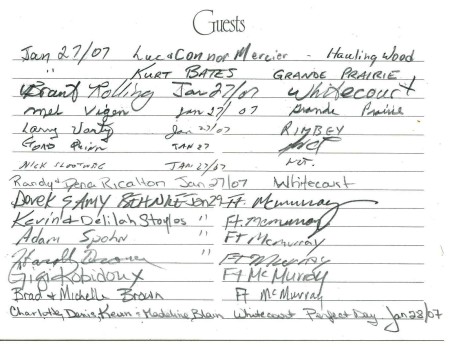 Guests
Jan 27/07 Luc & Connor Mercier - Hauling Wood
" Kurt Bates Grande Prairie
Brant Rolling Jan 27/07 Whitecourt
Mel Vigen Jan 27/07 Grande Prairie
Larry Jan 27/07 RIMBEY
Gord Jan 27/07 WCT
Nick Jan 27/07 WCT.
Randy & Dena Ricalton Jan 27/07 Whitecourt
Derek & Amy Jan 27 Ft. Mcmurray
Kevin & Delilah Stayles " Ft. Mcmurray
Adam Spohn " Ft McMurray
" Ft McMurray
Gigi Robidoux Ft McMurray
Brad & Michelle Brown Ft McMurray
Charlotte, Denis, Kevin & Madeline Blain Whitecourt Perfect Day Jan 28/07